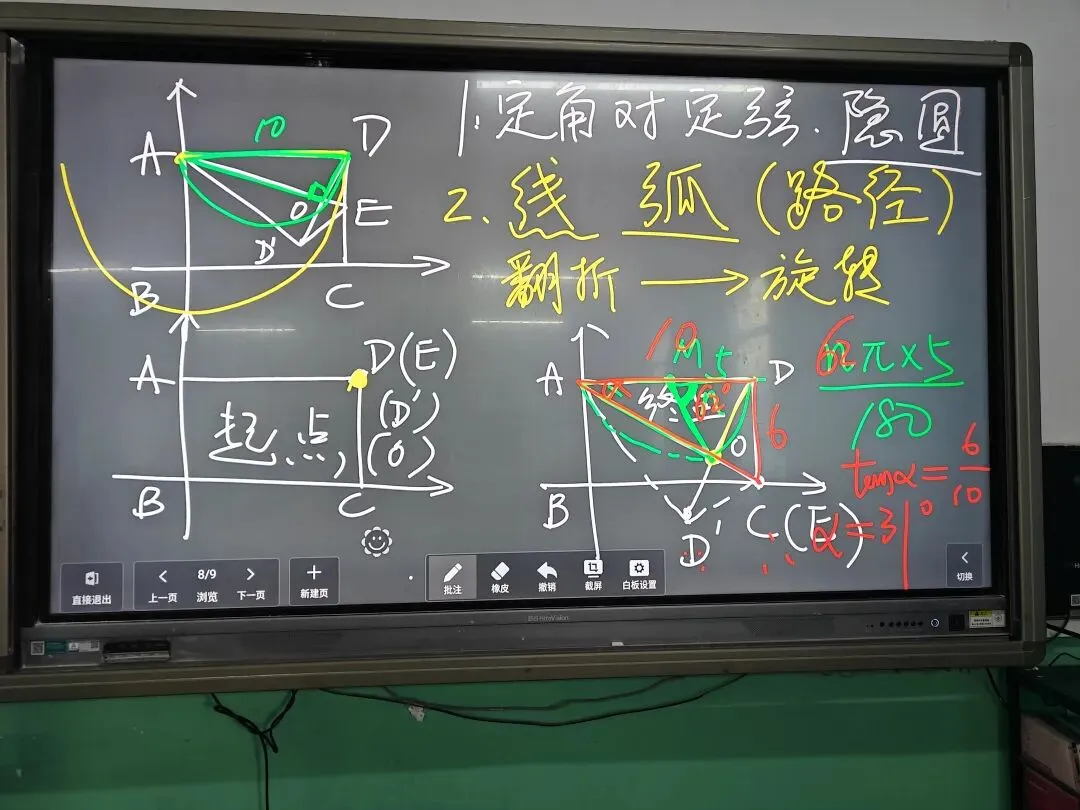 1.定角对定弦.隐圆
2.线 弧(路径)
翻折 → 旋转
A
10
D
O
E
D'
B
C
A
D(E)
(D')
(O)
起点,
B
C
A
10
M
5
D
α
终点
62°
O
6
B
D'
C(E)
62π×5
180
tanα=6
10
α=31°
直接退出
上一页
8/9
浏览
下一页
新建页
批注
橡皮
撤销
截屏
白板设置
切换